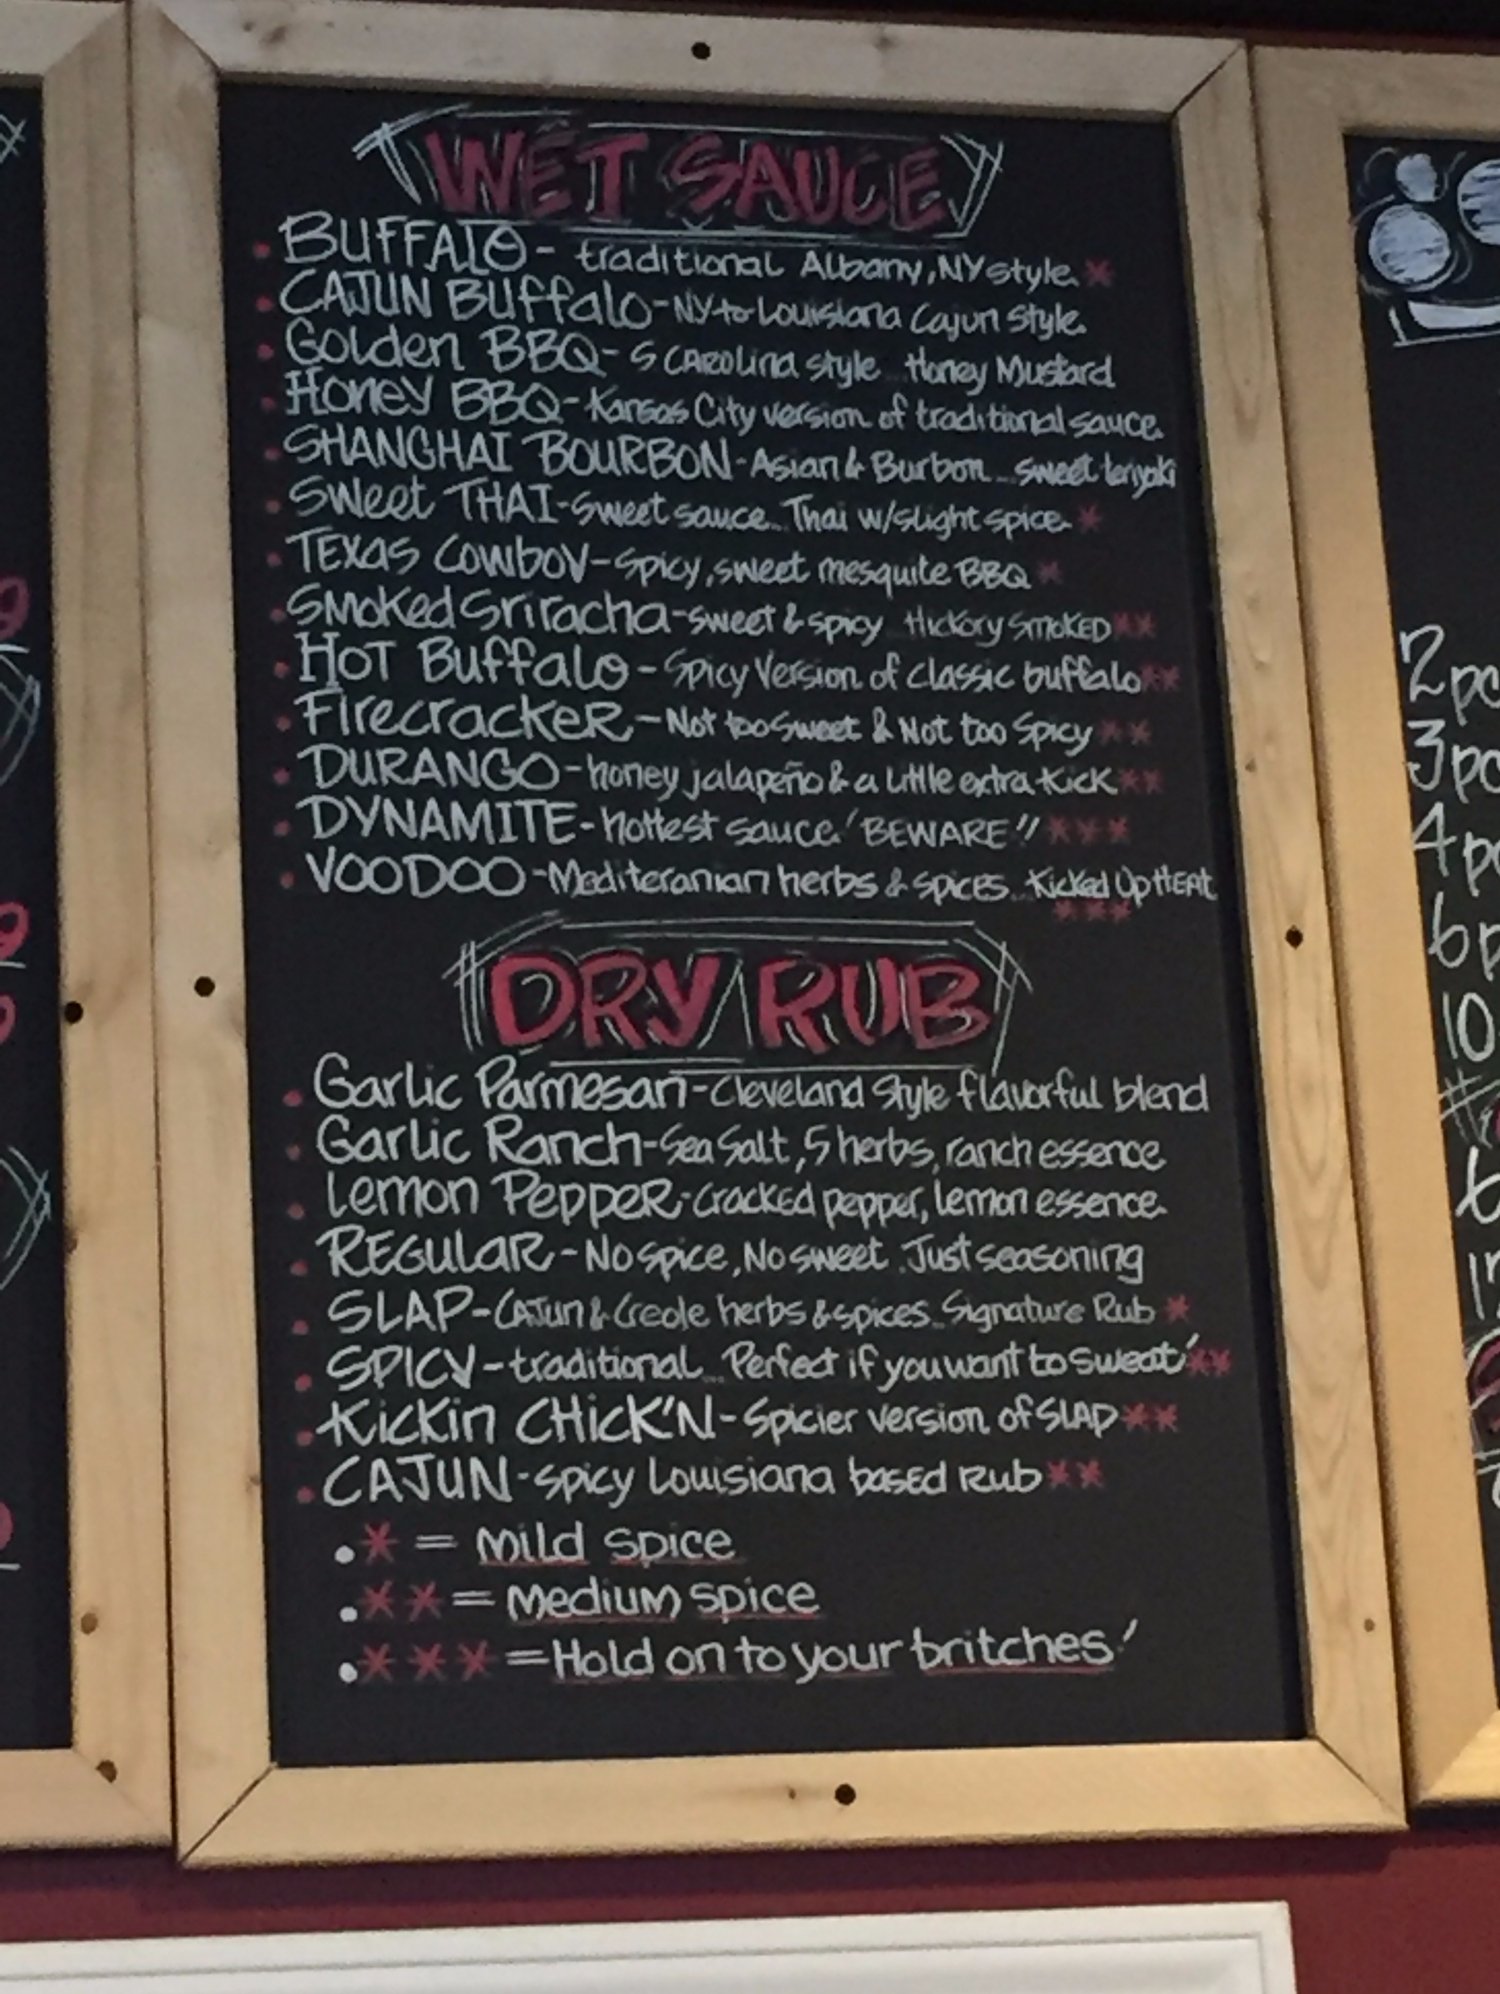 WET SAUCE
• BUFFALO - traditional Albany, NY style. *
• CAJUN Buffalo - NY to Louisiana Cajun style.
• Golden BBQ - S CAROlina style... Honey Mustard
• Honey BBQ - Kansas City version of traditional sauce.
• SHANGHAI BOURBON - Asian & Burbon... sweet teriyaki
• Sweet THAI - Sweet sauce... Thai w/slight spice *
• TEXAS COWBOY - Spicy, sweet mesquite BBQ *
• Smoked Sriracha - sweet & spicy... Hickory SMOKED **
• HOT Buffalo - Spicy Version of classic buffalo **
• FirecrackeR - Not too Sweet & Not too Spicy **
• DURANGO - honey jalapeño & a little extra kick **
• DYNAMITE - hottest sauce! BEWARE!! ***
• VOODOO - Mediteranian herbs & spices... Kicked Up HEAt
***
DRY RUB
• Garlic Parmesan - Cleveland Style flavorful blend
• Garlic Ranch - Sea Salt, 5 herbs, ranch essence
• Lemon Pepper - Cracked pepper, lemon essence.
• REGulaR - No spice, No sweet. Just seasoning
• SLAP - Cajun & Creole herbs & spices... Signature Rub *
• SPICY - traditional... Perfect if you want to sweat! **
• Kickin CHICK'N - Spicier version of SLAP **
• CAJUN - spicy Louisiana based Rub **
• * = Mild spice
• ** = Medium spice
• *** = Hold on to your britches!
2 pc
3 pc
4 pc
6 p
10